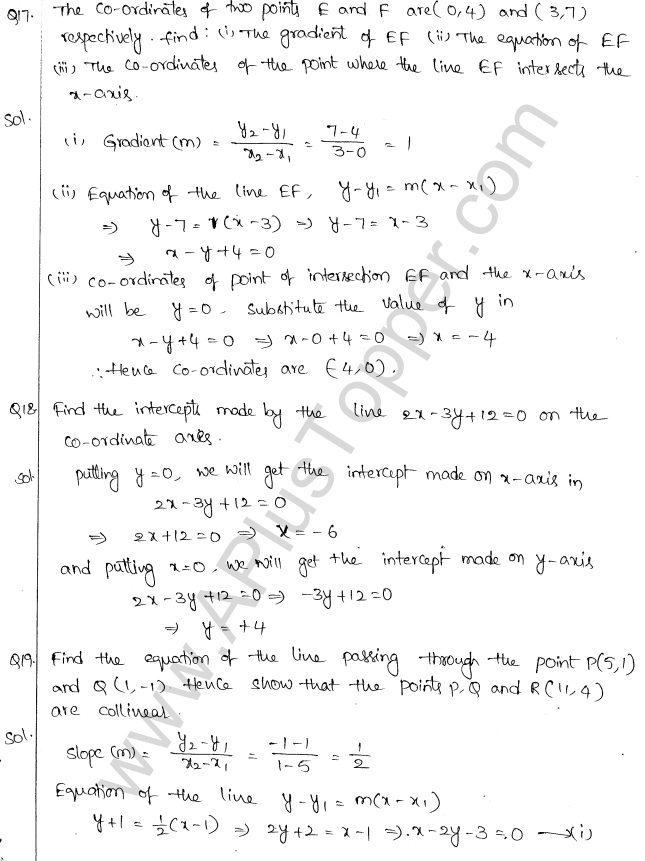 Q17. The co-ordinates of two points E and F are (0,4) and (3,7)
respectively. find: (i) The gradient of EF (ii) The equation of EF
(iii) The co-ordinates of the point where the line EF intersects the
x-axis.
Sol.
(i) Gradient (m) = (y₂-y₁)/(x₂-x₁) = (7-4)/(3-0) = 1
(ii) Equation of the line EF, y-y₁ = m(x-x₁)
⇒ y-7 = 1(x-3) ⇒ y-7 = x-3
⇒ x-y+4=0
(iii) co-ordinates of point of intersection EF and the x-axis
will be y=0. substitute the value of y in
x-y+4=0 ⇒ x-0+4=0 ⇒ x=-4
∴ Hence co-ordinates are (-4,0).
Q18. Find the intercepts made by the line 2x-3y+12=0 on the
co-ordinate axes.
Sol. putting y=0, we will get the intercept made on x-axis in
2x-3y+12=0
⇒ 2x+12=0 ⇒ x=-6
and putting x=0, we will get the intercept made on y-axis
2x-3y+12=0 ⇒ -3y+12=0
⇒ y=+4
Q19. Find the equation of the line passing through the point P(5,1)
and Q(1,-1). Hence show that the points P,Q and R(11,4)
are collinear.
Sol.
Slope (m) = (y₂-y₁)/(x₂-x₁) = (-1-1)/(1-5) = 1/2
Equation of the line y-y₁ = m(x-x₁)
y+1 = 1/2(x-1) ⇒ 2y+2 = x-1 ⇒ x-2y-3=0 →(i)
www.APlusTopper.com